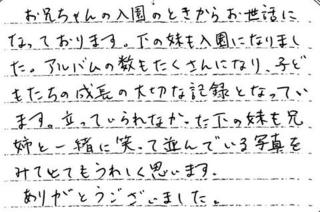 お兄ちゃんの入園のときからお世話に
なっております。下の妹も入園になりまし
た。アルバムの数もたくさんになり、子ど
もたちの成長の大切な記録となってい
ます。立っていられなかった下の妹も兄
姉と一緒に笑って並んでいる写真を
みてとてもうれしく思います。
ありがとうございました。